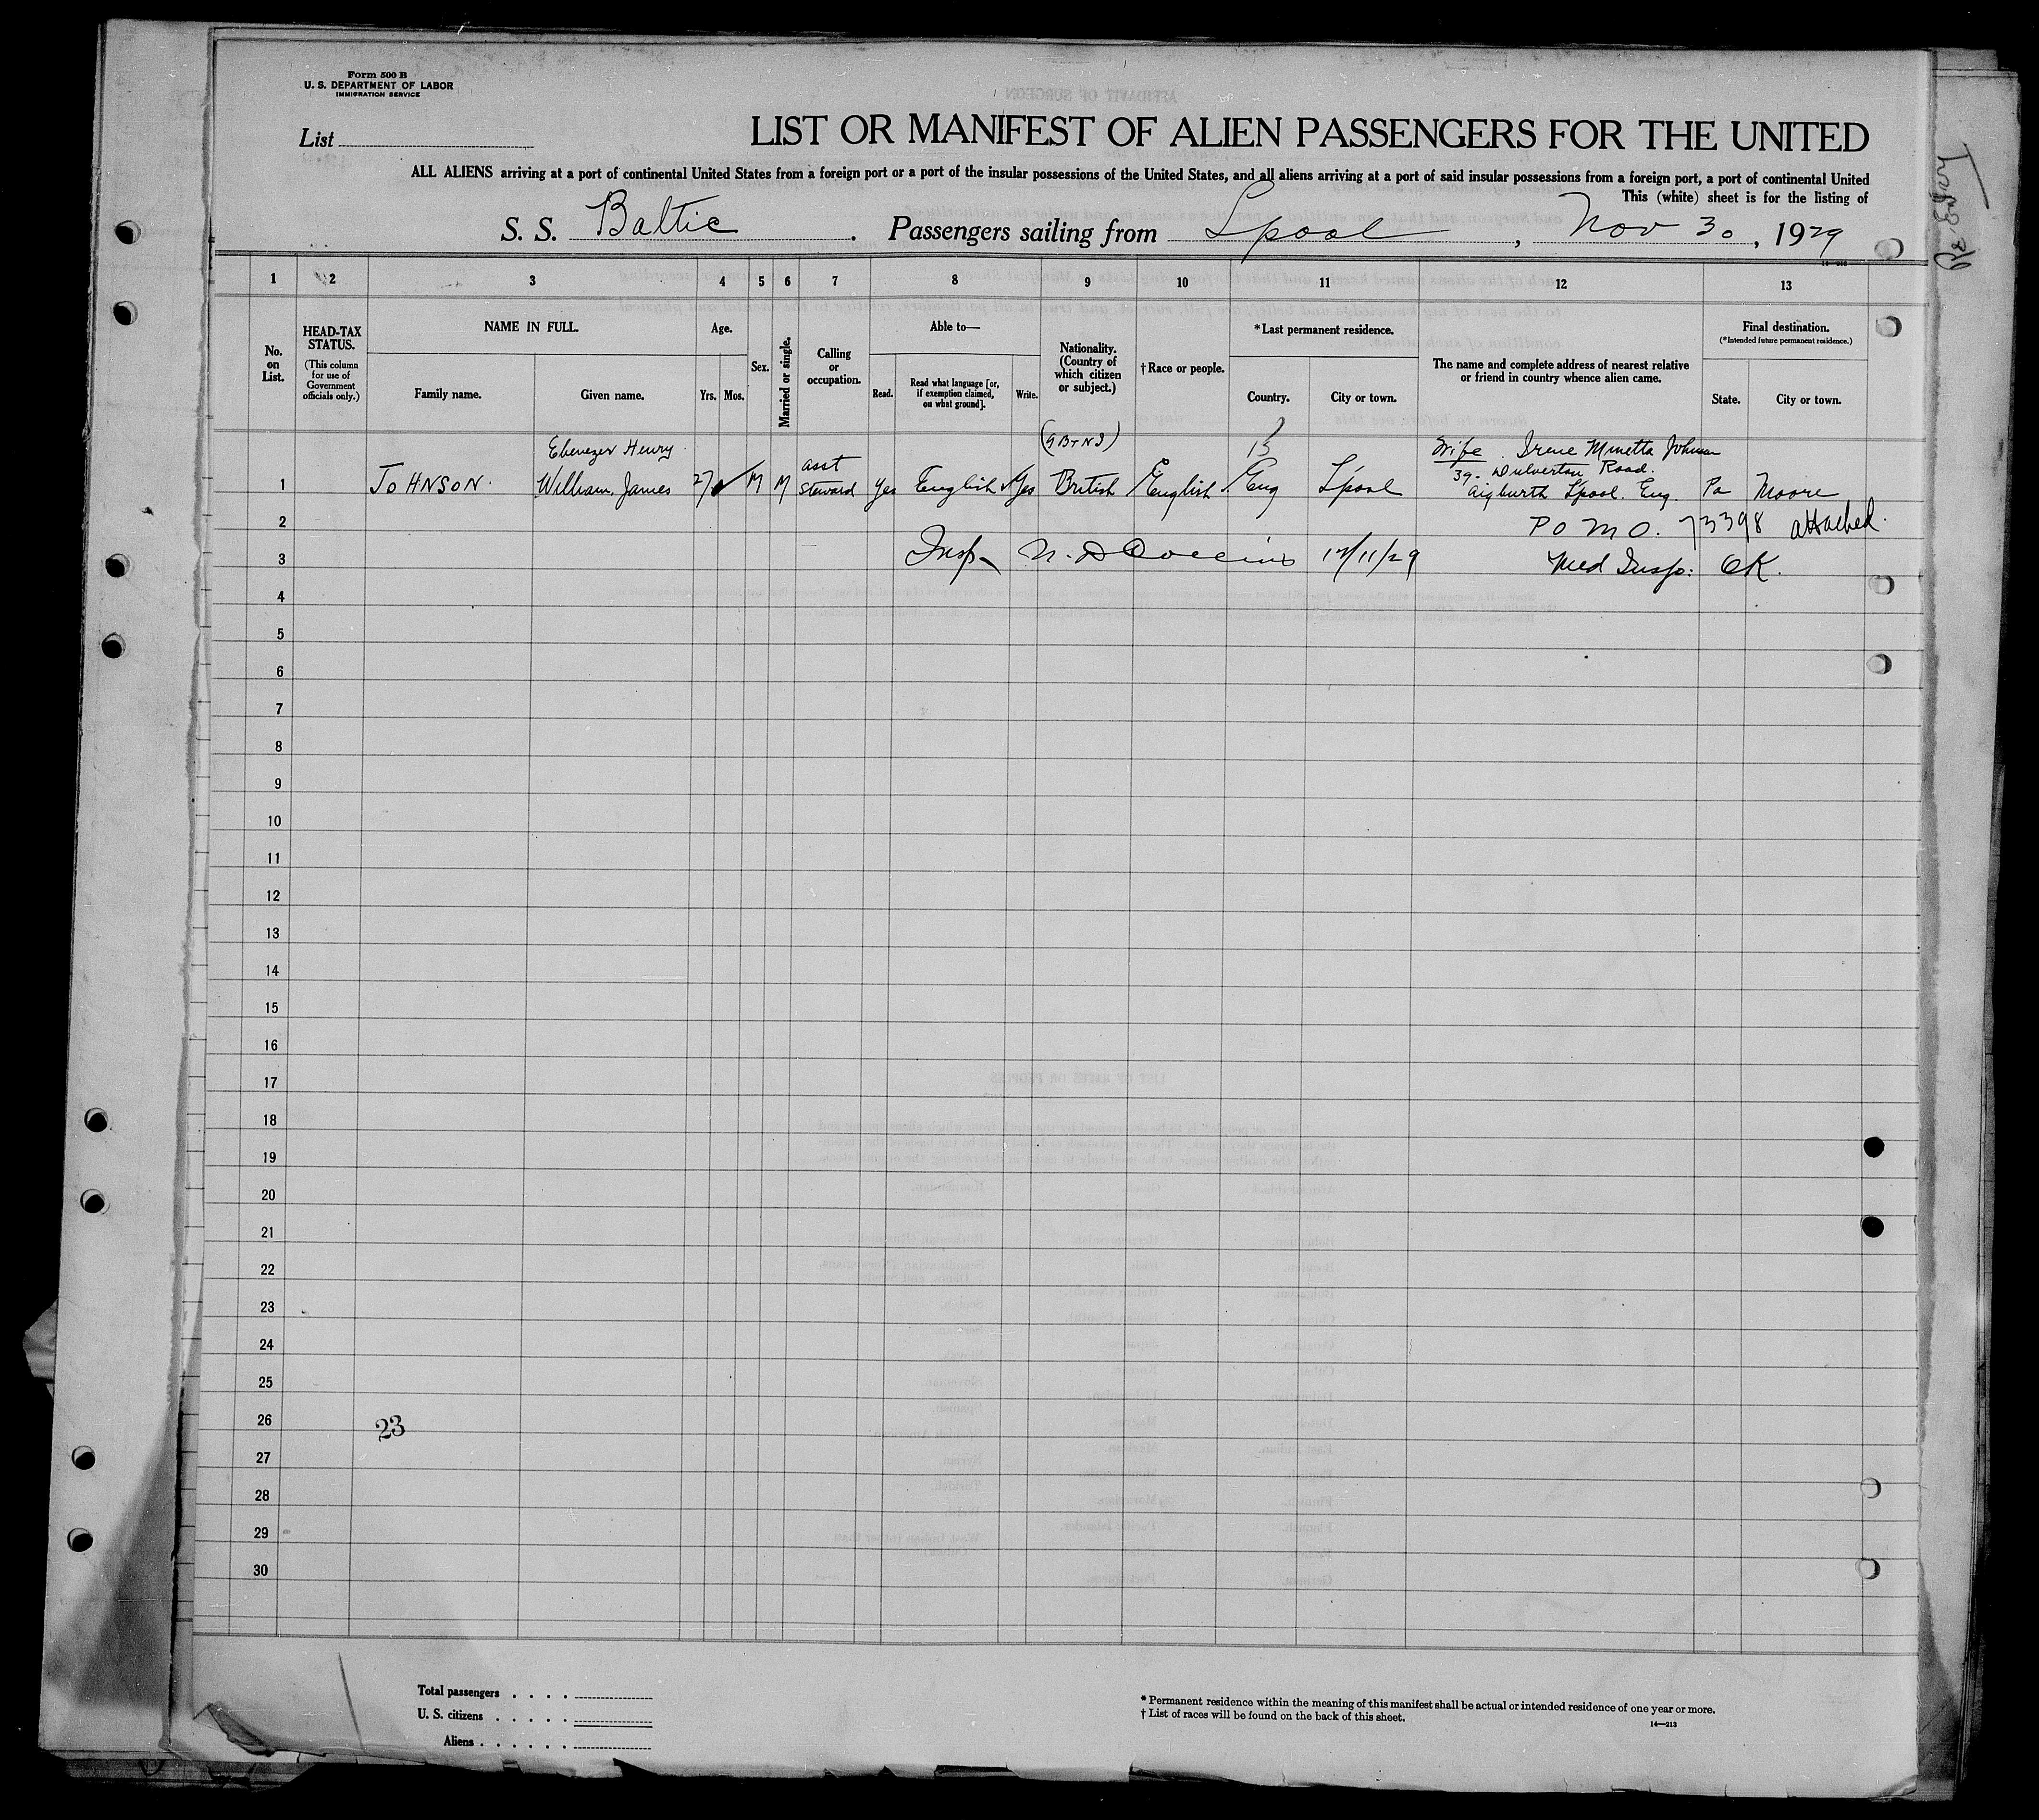 Form 500 B
U. S. DEPARTMENT OF LABOR
IMMIGRATION SERVICE
List
LIST OR MANIFEST OF ALIEN PASSENGERS FOR THE UNITED
ALL ALIENS arriving at a port of continental United States from a foreign port or a port of the insular possessions of the United States, and all aliens arriving at a port of said insular possessions from a foreign port, a port of continental United
This (white) sheet is for the listing of
S. S. Baltic. Passengers sailing from L'pool, Nov 30, 1929
1 2 3 4 5 6 7 8 9 10 11 12 13
No. on List.
HEAD-TAX STATUS.
(This column for use of Government officials only.)
NAME IN FULL.
Family name.
Given name.
Age.
Yrs. Mos.
Sex.
Married or single.
Calling or occupation.
Able to—
Read.
Read what language [or, if exemption claimed, on what ground].
Write.
Nationality. (Country of which citizen or subject.)
†Race or people.
*Last permanent residence.
Country.
City or town.
The name and complete address of nearest relative or friend in country whence alien came.
Final destination.
(*Intended future permanent residence.)
State.
City or town.
Ebenezer Henry (GB+NI) 13 Wife. Irene Minetta Johnson
39- Dulverton Road.
1 JOHNSON. William James 27 M M asst steward Yes English Yes British English Eng L'pool Aigburth L'pool. Eng. Pa Moore
2 P O M O. 73398 attached.
3 Insp. 12/11/29 Med Insp: OK.
4
5
6
7
8
9
10
11
12
13
14
15
16
17
18
19
20
21
22
23
24
25
26 23
27
28
29
30
Total passengers . . . .
U. S. citizens . . . . .
Aliens . . . . . .
* Permanent residence within the meaning of this manifest shall be actual or intended residence of one year or more.
† List of races will be found on the back of this sheet.
14—213